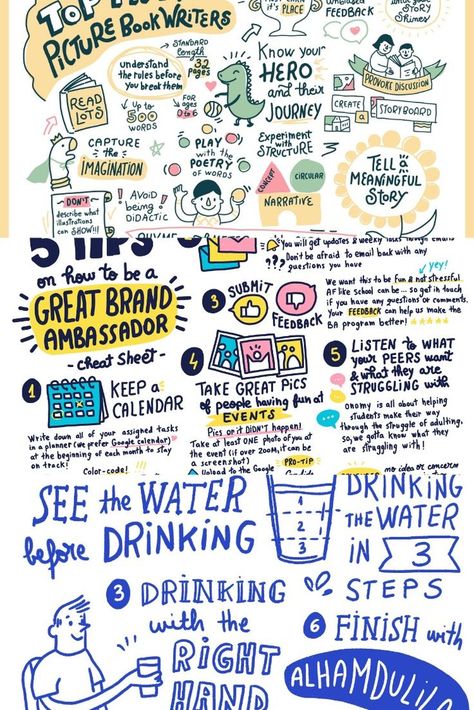 TOP
PICTURE BOOK WRITERS
PLACE
FEEDBACK
STORY
SHINES
understand
the rules before
you break them
STANDARD
length
32
pages
Know your
HERO
and their
JOURNEY
PROVOKE DISCUSSION
CREATE a
STORYBOARD
READ
LOTS
Up to
500
WORDS
FOR
ages
0 to 6
PLAY
with the
POETRY
OF WORDS
Experiment with
STRUCTURE
CONCEPT
CIRCULAR
NARRATIVE
TELL a
MEANINGFUL
STORY
CAPTURE
the
IMAGINATION
DON'T
describe what
illustrations
can SHOW!!!
AVOID
being a
DIDACTIC
5 TIPS
on how to be a
GREAT BRAND
AMBASSADOR
- cheat Sheet -
You will get updates & weekly tasks through emails
Don't be afraid to email back with any
questions you have
yey!
3 SUBMIT
FEEDBACK
We want this to be fun & not stressful
AF like School can be... so get in touch
if you have any questions or comments.
Your FEEDBACK can help us make the
BA program better!
1 KEEP a
CALENDAR
Write down all of your assigned tasks
in a planner (we prefer Google calendar)
at the beginning of each month to stay
on track!
Color-code!
4
TAKE GREAT PICS
of people having fun at
EVENTS
Pics or it DIDN't happen!
Take at least ONE photo of you at
the event (if over 200M, it can be
a screenshot)
Upload to the Google
PRO-TIP
5 LISTEN to WHAT
your PEERS want
& what they are
STRUGGLING with
onomy is all about helping
students make their way
through the struggle of adulting,
so, we gotta know what they
are struggling with!
no idea or concern
SEE the WATER
before DRINKING
1
2
3
DRINKING
THE WATER
IN 3
STEPS
3 DRINKING
with the
RIGHT
HAND
6 FINISH with
ALHAMDULILA